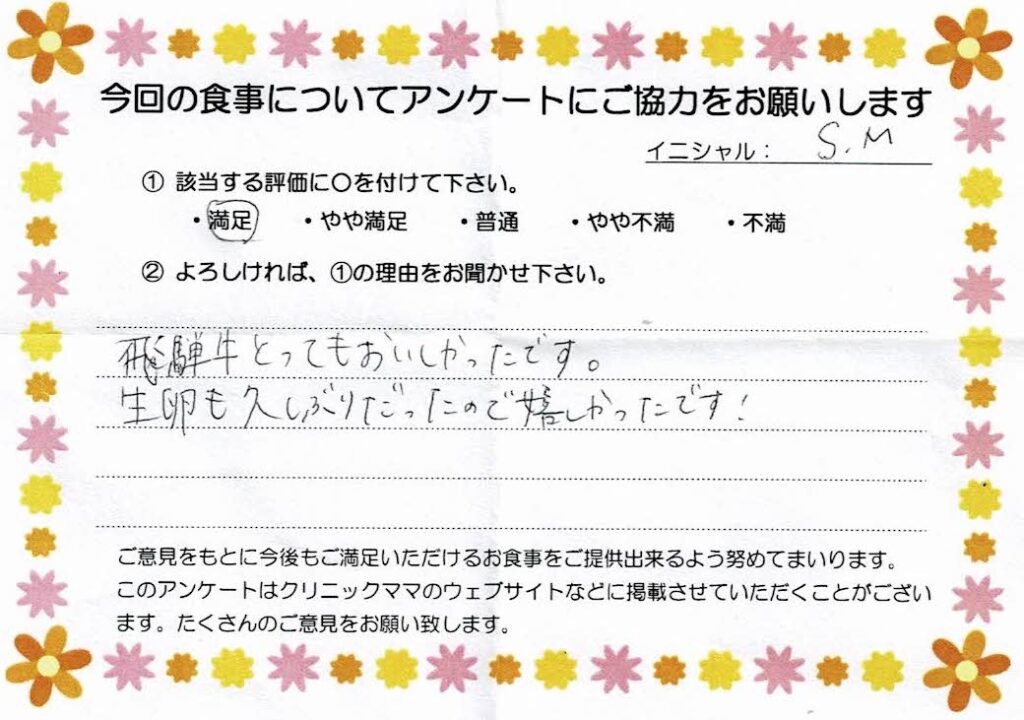 今回の食事についてアンケートにご協力をお願いします
イニシャル： S.M
① 該当する評価に〇を付けて下さい。
・満足 ・やや満足 ・普通 ・やや不満 ・不満
② よろしければ、①の理由をお聞かせ下さい。
飛騨牛とってもおいしかったです。
生卵も久しぶりだったので嬉しかったです！
ご意見をもとに今後もご満足いただけるお食事をご提供出来るよう努めてまいります。
このアンケートはクリニックママのウェブサイトなどに掲載させていただくことがござい
ます。たくさんのご意見をお願い致します。